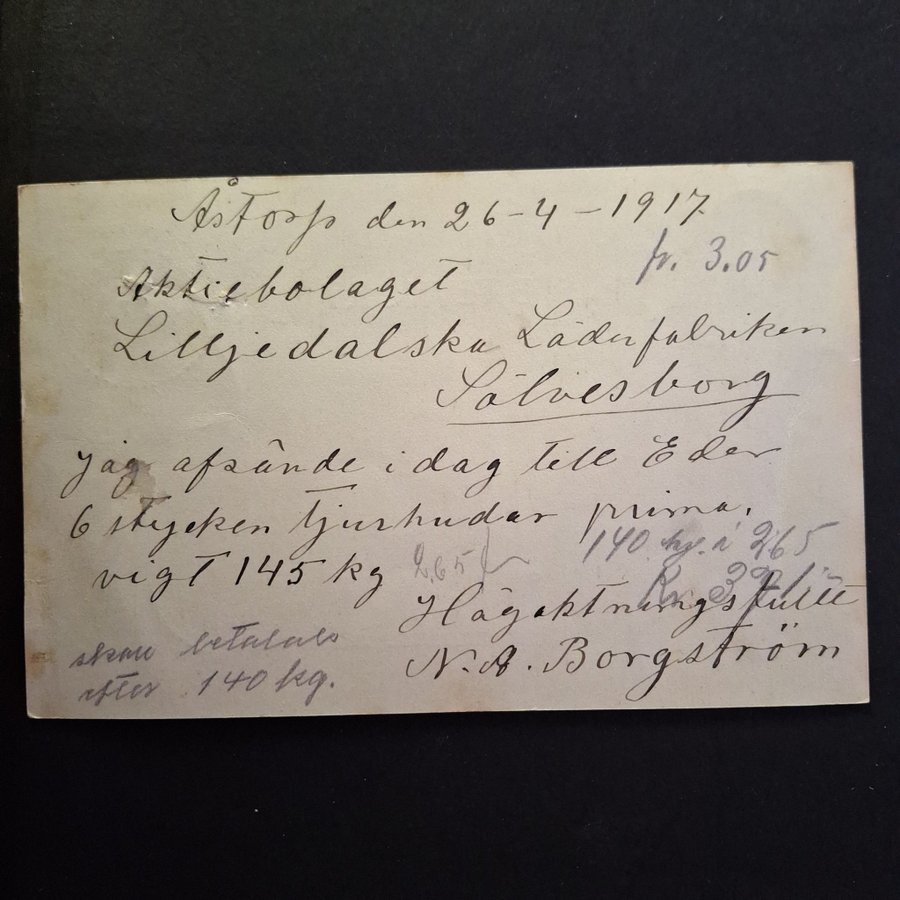 Åstorp den 26-4-1917.
fr. 3.05
Aktiebolaget
Lilljedalska Läderfabriken
Sölvesborg
Jag afsände i dag till Eder
6 stycken tjurhudar prima,
140 kg. à 2,65
vigt 145 kg 2,65
Kr. 371:-
Högaktningsfullt
N. A. Borgström
skall betalals
efter 140 kg.